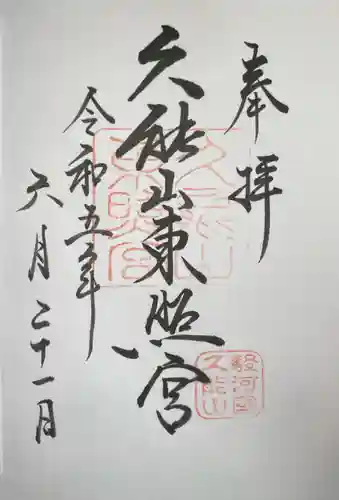 奉拝
久能山東照宮
令和五年
六月二十一日
久能山東照宮
駿河国久能山